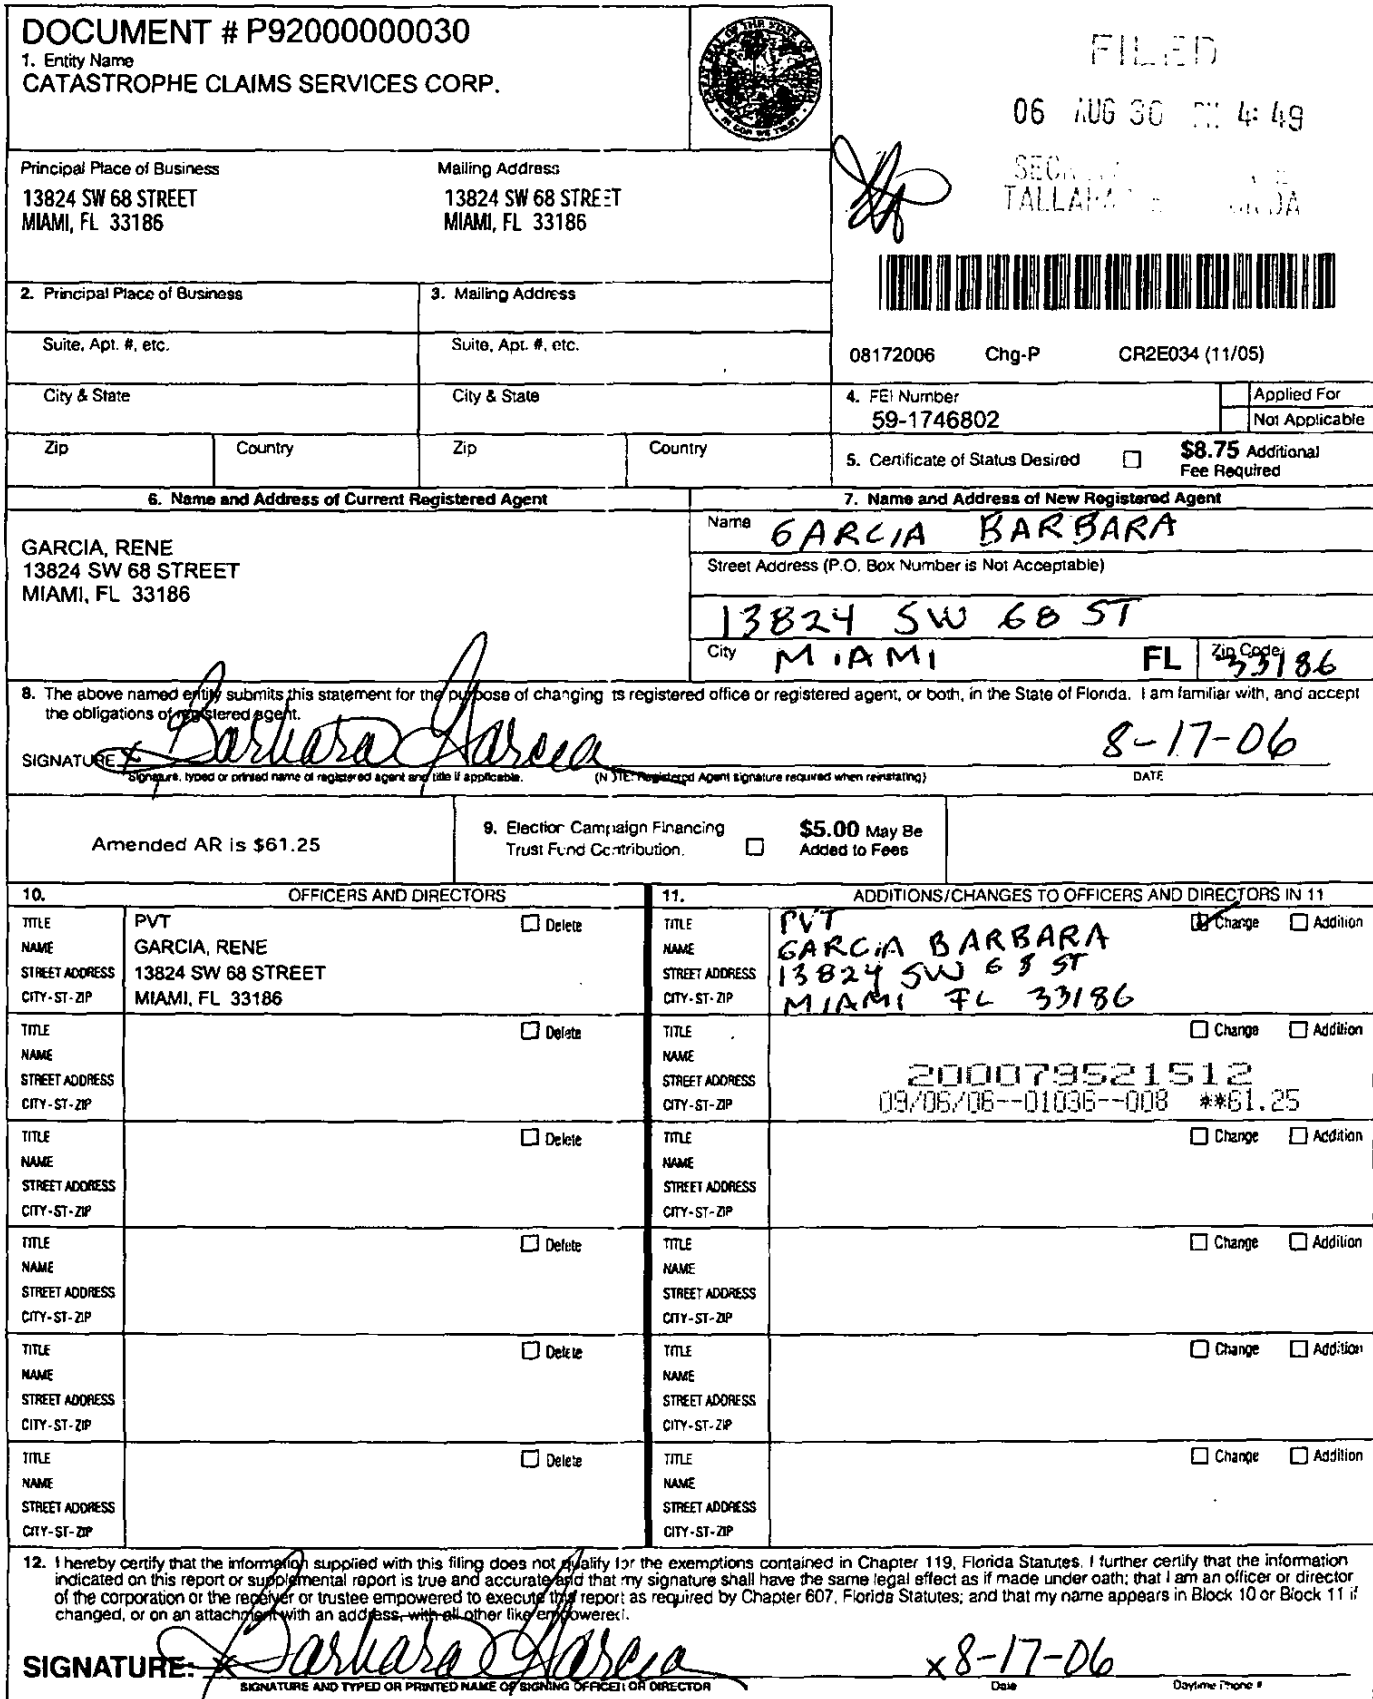 DOCUMENT # P92000000030
1. Entity Name
CATASTROPHE CLAIMS SERVICES CORP.
FILED
06 AUG 30 4:49
Principal Place of Business
13824 SW 68 STREET
MIAMI, FL 33186
Mailing Address
13824 SW 68 STREET
MIAMI, FL 33186
2. Principal Place of Business
3. Mailing Address
Suite, Apt. #, etc.
Suite, Apt. #, etc.
08172006 Chg-P CR2E034 (11/05)
City & State
City & State
4. FEI Number
59-1746802
Applied For
Not Applicable
Zip
Country
Zip
Country
5. Certificate of Status Desired
$8.75 Additional
Fee Required
6. Name and Address of Current Registered Agent
GARCIA, RENE
13824 SW 68 STREET
MIAMI, FL 33186
7. Name and Address of New Registered Agent
Name GARCIA BARBARA
Street Address (P.O. Box Number is Not Acceptable)
13824 SW 68 ST
City MIAMI FL Zip Code 33186
8. The above named entity submits this statement for the purpose of changing its registered office or registered agent, or both, in the State of Florida. I am familiar with, and accept
the obligations of registered agent.
SIGNATURE X Barbara Garcia 8-17-06
Signature, typed or printed name of registered agent and title if applicable. (NOTE: Registered Agent signature required when reinstating) DATE
Amended AR is $61.25
9. Election Campaign Financing
Trust Fund Contribution.
$5.00 May Be
Added to Fees
10. OFFICERS AND DIRECTORS
11. ADDITIONS/CHANGES TO OFFICERS AND DIRECTORS IN 11
TITLE PVT Delete
NAME GARCIA, RENE
STREET ADDRESS 13824 SW 68 STREET
CITY-ST-ZIP MIAMI, FL 33186
TITLE PVT Change Addition
NAME GARCIA BARBARA
STREET ADDRESS 13824 SW 68 ST
CITY-ST-ZIP MIAMI FL 33186
TITLE Delete
NAME
STREET ADDRESS
CITY-ST-ZIP
TITLE Change Addition
NAME
STREET ADDRESS 200079521512
CITY-ST-ZIP 09/06/06--01036--008 **61.25
TITLE Delete
NAME
STREET ADDRESS
CITY-ST-ZIP
TITLE Change Addition
NAME
STREET ADDRESS
CITY-ST-ZIP
TITLE Delete
NAME
STREET ADDRESS
CITY-ST-ZIP
TITLE Change Addition
NAME
STREET ADDRESS
CITY-ST-ZIP
TITLE Delete
NAME
STREET ADDRESS
CITY-ST-ZIP
TITLE Change Addition
NAME
STREET ADDRESS
CITY-ST-ZIP
TITLE Delete
NAME
STREET ADDRESS
CITY-ST-ZIP
TITLE Change Addition
NAME
STREET ADDRESS
CITY-ST-ZIP
12. I hereby certify that the information supplied with this filing does not qualify for the exemptions contained in Chapter 119, Florida Statutes. I further certify that the information
indicated on this report or supplemental report is true and accurate and that my signature shall have the same legal effect as if made under oath; that I am an officer or director
of the corporation or the receiver or trustee empowered to execute this report as required by Chapter 607, Florida Statutes; and that my name appears in Block 10 or Block 11 if
changed, or on an attachment with an address, with all other like empowered.
SIGNATURE: X Barbara Garcia x 8-17-06
SIGNATURE AND TYPED OR PRINTED NAME OF SIGNING OFFICER OR DIRECTOR Date Daytime Phone #